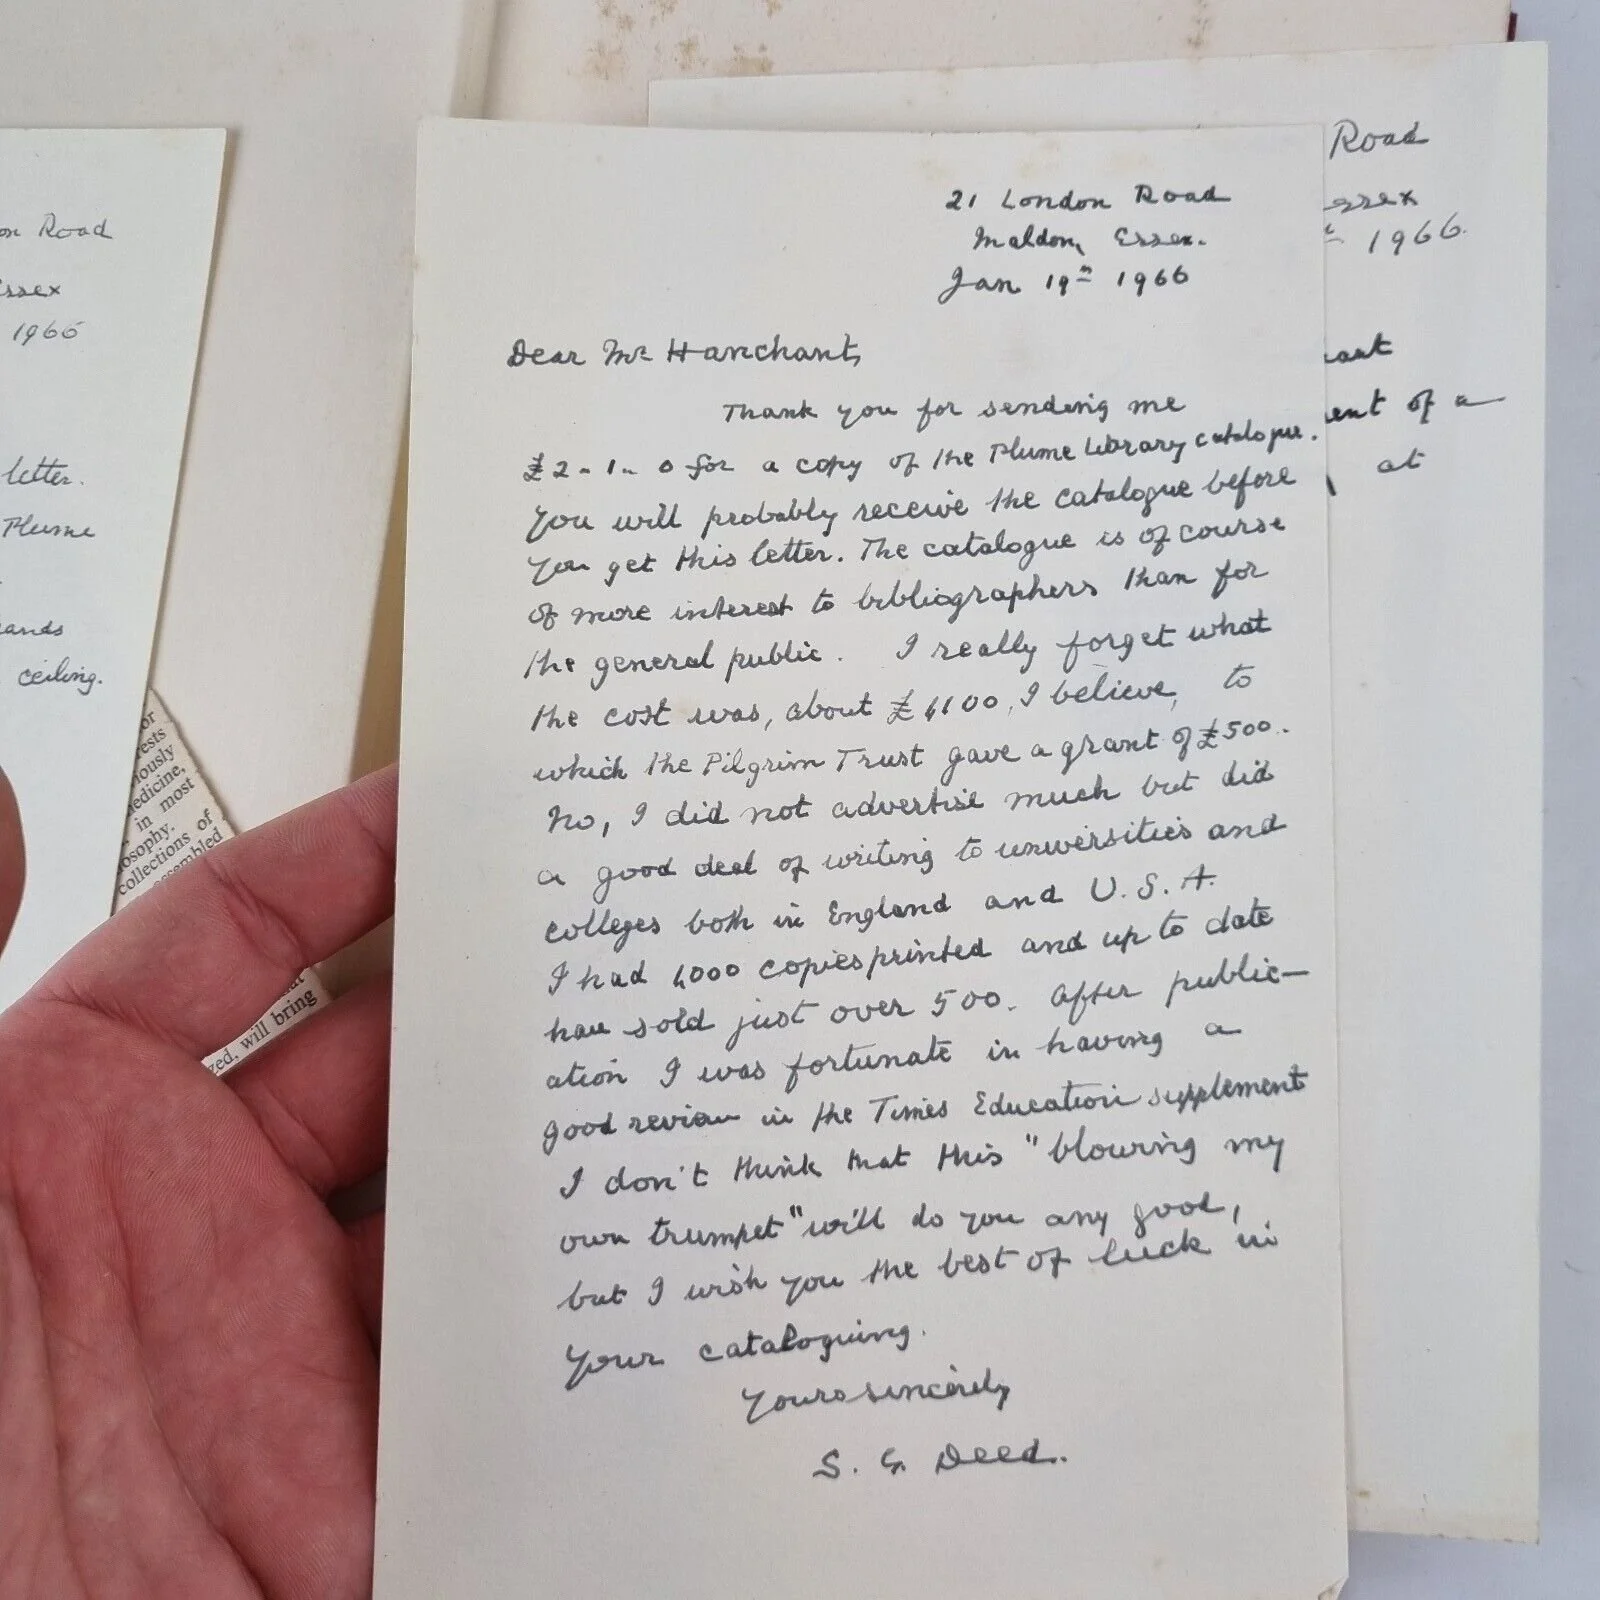 21 London Road
Maldon, Essex.
Jan 19th 1966
Dear Mr Hanchant,
Thank you for sending me
£2-1-0 for a copy of the Plume Library catalogue.
You will probably receive the catalogue before
you get this letter. The catalogue is of course
of more interest to bibliographers than for
the general public. I really forget what
the cost was, about £1100, I believe, to
which the Pilgrim Trust gave a grant of £500.
No, I did not advertise much but did
a good deal of writing to universities and
colleges both in England and U.S.A.
I had 1000 copies printed and up to date
have sold just over 500. After public-
ation I was fortunate in having a
good review in the Times Education supplement
I don't think that this "blowing my
own trumpet" will do you any good,
but I wish you the best of luck in
your cataloguing.
Yours sincerely
S. G. Deed.
on Road
Essex
1966
letter.
Plume
ands
ceiling.
or
ests
iously
edicine,
in most
osophy.
collections of
assembled
zed, will bring
Road
ssex
1966.
ant
ent of a
at